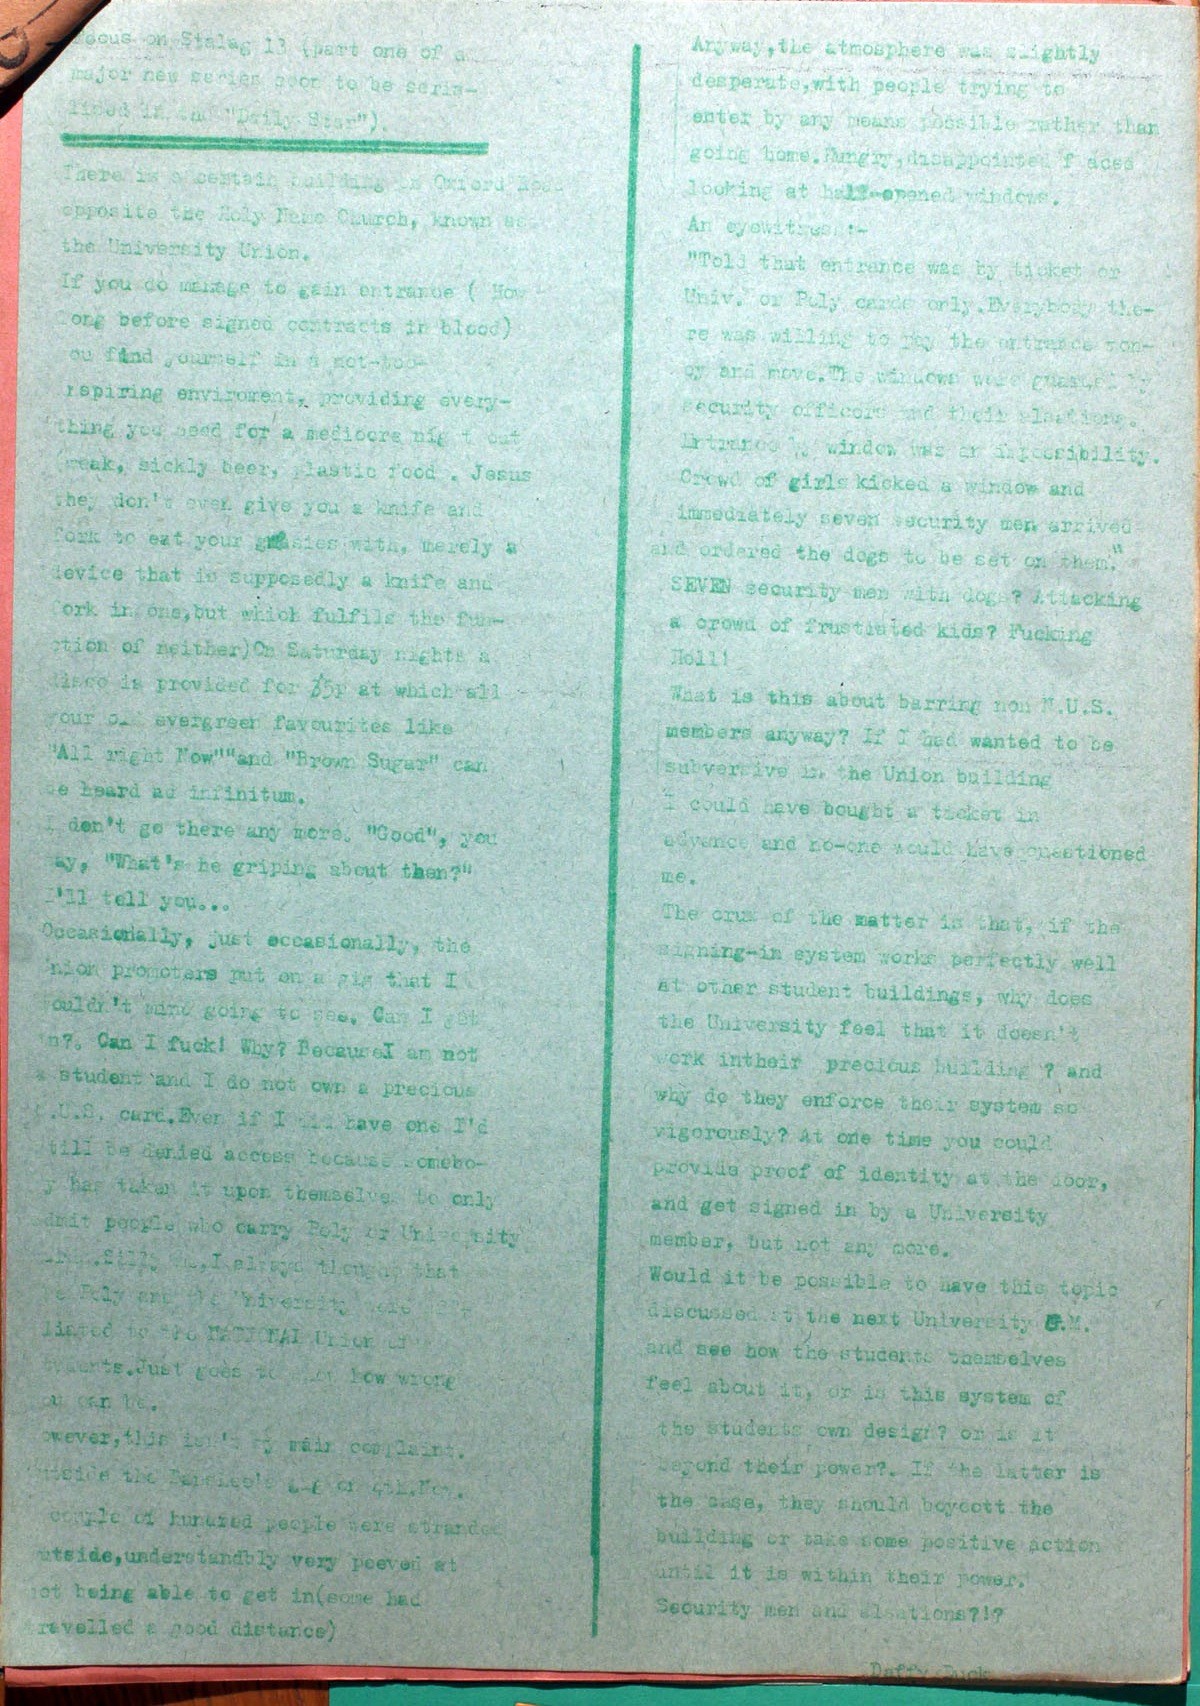 Focus on Stalag 13 (part one of a
major new series soon to be seria-
lised in the "Daily Star").
There is a certain building on Oxford Road
opposite the Holy Name Church, known as
the University Union.
If you do manage to gain entrance ( How
ong before signed contracts in blood)
ou find yourself in a not-too-
nspiring enviroment, providing every-
thing you need for a mediocre night out
weak, sickly beer, plastic food . Jesus
they don't even give you a knife and
fork to eat your greasies with, merely a
device that is supposedly a knife and
fork in one,but which fulfils the fun-
ction of neither)On Saturday nights a
disco is provided for 35p at which all
your old evergreen favourites like
"All right Now""and "Brown Sugar" can
be heard ad infinitum.
I don't go there any more. "Good", you
ay, "What's he griping about then?"
I'll tell you...
Occasionally, just occasionally, the
nion promoters put on a gig that I
ouldn't mind going to see. Can I get
n?. Can I fuck! Why? BecauseI am not
a student and I do not own a precious
.U.S. card.Even if I did have one I'd
till be denied access because somebo-
y has taken it upon themselves to only
dmit people who carry Poly or University
Silly me,I always thought that
he Poly and the University were affi-
liated to the NATIONAL Union of
tudents.Just goes to show how wrong
ou can be.
owever,this isn't my main complaint.
utside the Banshee's gig on 4th.Nov.
couple of hundred people were stranded
utside,understandbly very peeved at
not being able to get in(some had
travelled a good distance)
Anyway,the atmosphere was slightly
desperate,with people trying to
enter by any means possible rather than
going home.Hungry,disappointed f aces
looking at half-opened windows.
An eyewitness:-
"Told that entrance was by ticket or
Univ. or Poly cards only.Everybody the-
re was willing to pay the entrance mon-
ey and move.The windows were guarded by
security officers and their alsations.
Entrance by window was an impossibility.
Crowd of girls kicked a window and
immediately seven security men arrived
and ordered the dogs to be set on them."
SEVEN security men with dogs? Attacking
a crowd of frustrated kids? Fucking
Hell!
What is this about barring non N.U.S.
members anyway? If I had wanted to be
subversive in the Union building
I could have bought a ticket in
advance and no-one would have questioned
me.
The crux of the matter is that, if the
signing-in system works perfectly well
at other student buildings, why does
the University feel that it doesn't
work intheir precious building ? and
why do they enforce their system so
vigorously? At one time you could
provide proof of identity at the door,
and get signed in by a University
member, but not any more.
Would it be possible to have this topic
discussed at the next University G.M.
and see how the students themselves
feel about it, or is this system of
the students own design? or is it
beyond their power?. If the latter is
the case, they should boycott the
building or take some positive action
until it is within their power.
Security men and alsations?!?
Daffy Duck